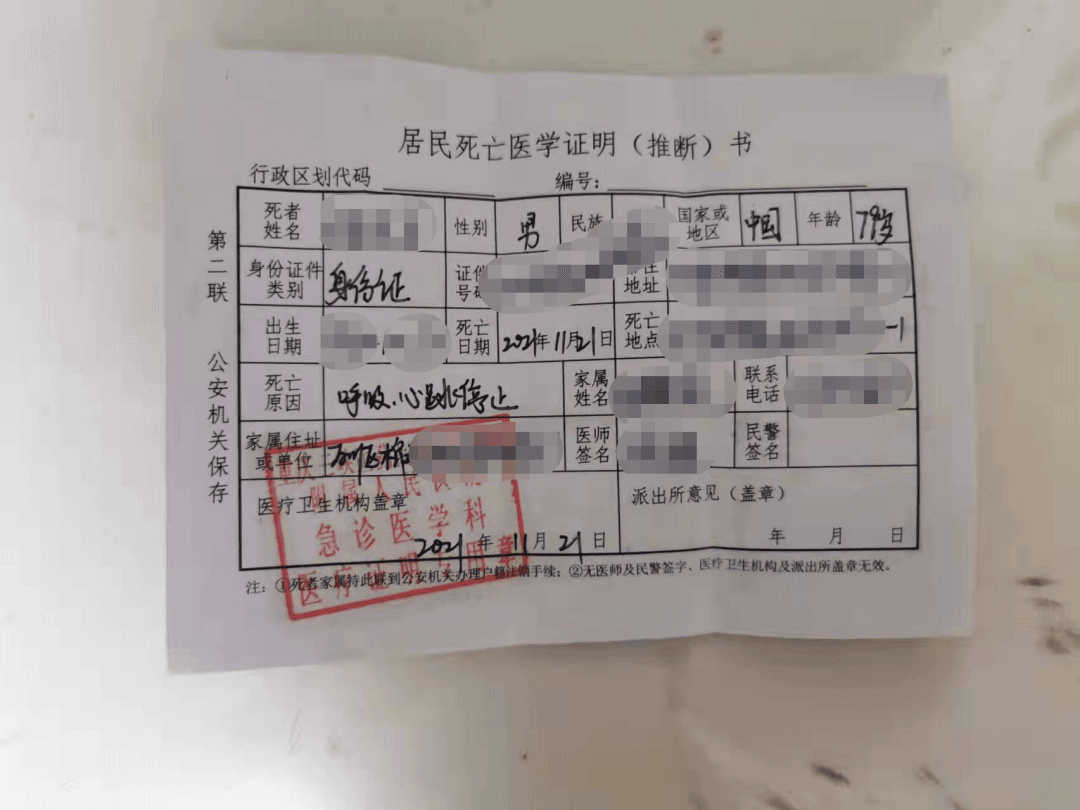 居民死亡医学证明（推断）书
行政区划代码 编号：
第二联 公安机关保存
死者姓名 性别 男 民族 国家或地区 中国 年龄 79岁
身份证件类别 身份证 证件号码 地址
出生日期 死亡日期 2021年11月21日 死亡地点 -1
死亡原因 呼吸、心跳停止 家属姓名 联系电话
家属住址或单位 医师签名 民警签名
医疗卫生机构盖章 派出所意见（盖章）
附属人民
急诊医学科
医疗证明专用章
2021年11月21日 年 月 日
注：①死者家属持此联到公安机关办理户籍注销手续；②无医师及民警签字、医疗卫生机构及派出所盖章无效。